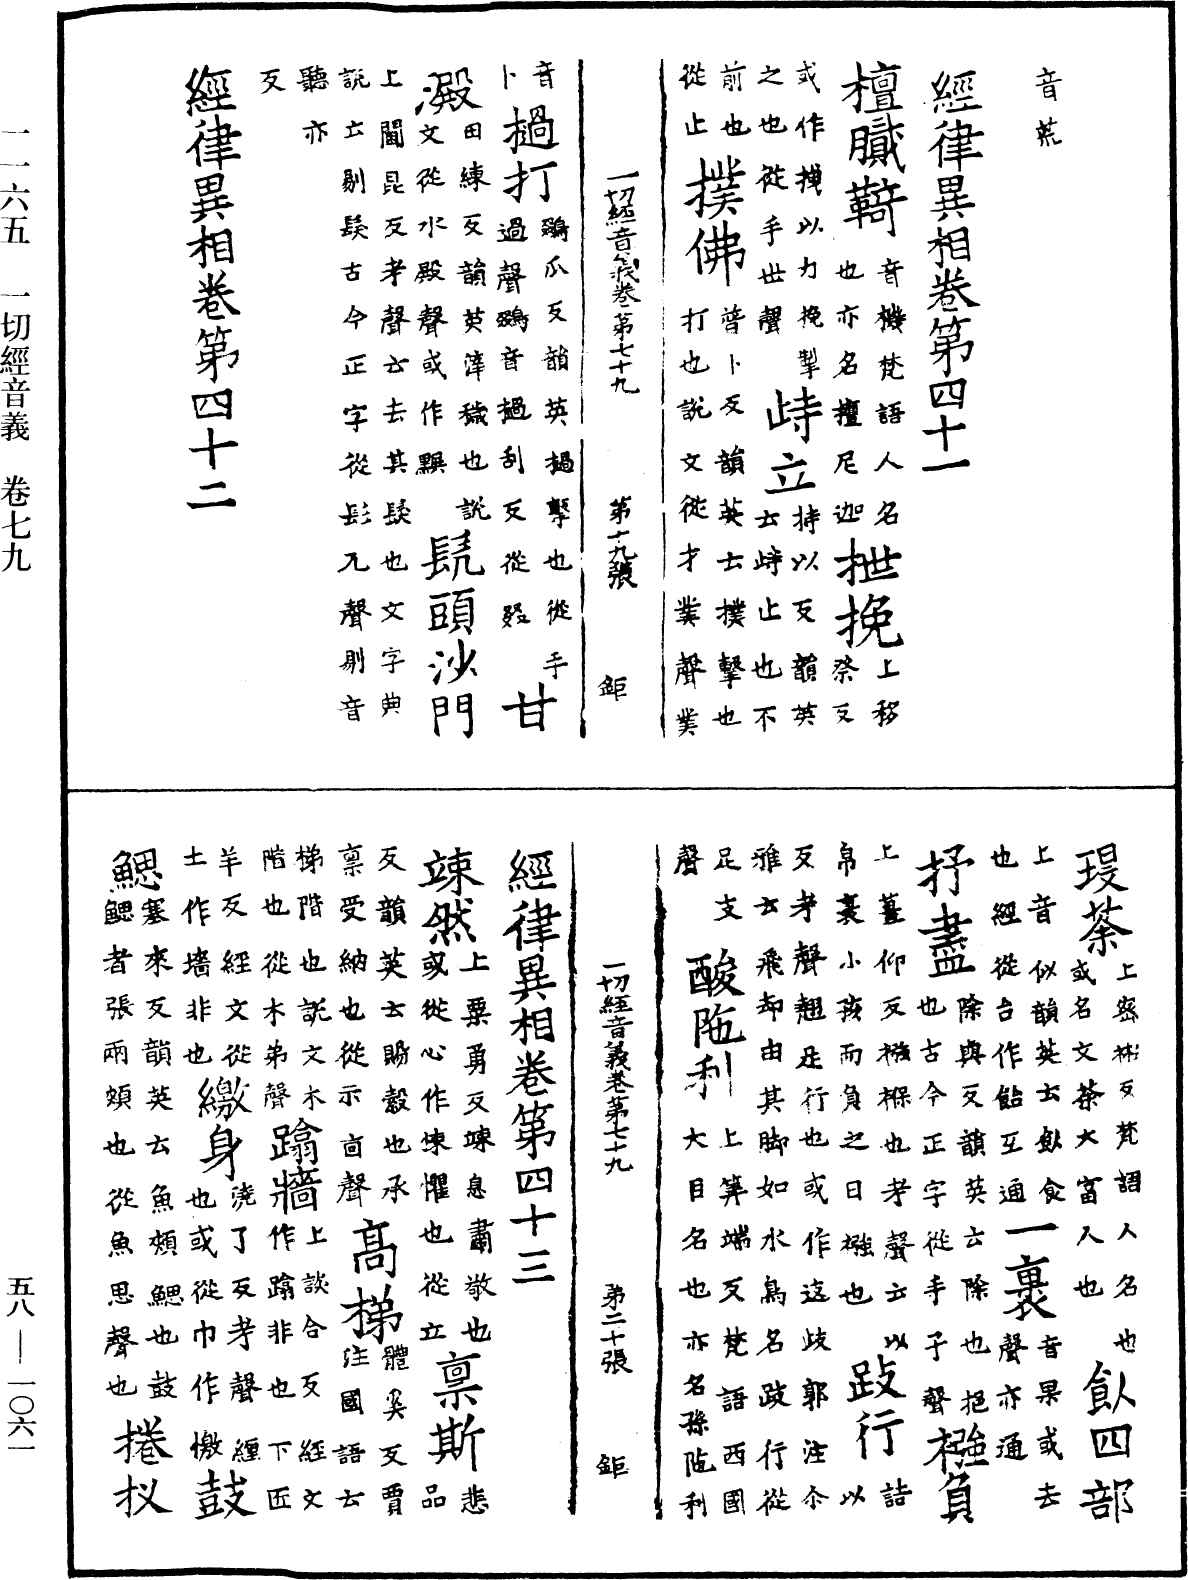 音荒
經律異相卷第四十一
檀膩䩭 音機梵語人名也亦名檀尼迦 抴挽 上移祭反
或作拽以力挽掣之也從手世聲 峙立 持以反韻英云峙止也不
前也從止 撲佛 普卜反韻英云撲擊也打也說文從才業聲業
一切經音義卷第七十九 第十九張 鉅
音卜 檛打 瓜反韻英檛擊也從手過聲 音檛刮反從殳 甘
澱 田練反韻英滓穢也說文從水殿聲或作黰 髡頭沙門
上閫昆反考聲云去其髮也文字典說云剔髮古今正字從髟兀聲剔音
聽亦反
經律異相卷第四十二
荼 上密彬反梵語人名也或名文荼大富人也 飤四部
上音似韻英云飤食也經從台作飴互通 一裹 上音果或去聲亦通
抒盡 除與反韻英云除也挹也古今正字從手予聲 襁負
上薑仰反襁褓也考聲云以帛裹小孩而負之曰襁也 跂行 詰以
反考聲翹足行也或作 歧郭注尒雅云飛却由其脚如水鳥名跂行從
足支聲 酸陁利 上筭端反梵語西國大目名也亦名孫陁利
一切經音義卷第七十九 第二十張 鉅
經律異相卷第四十三
竦然 上粟勇反竦息肅敬也或從心作悚懼也從立 稟斯 悲品
反韻英云賜穀也承稟受納也從示㐭聲 高梯 體奚反賈注國語云
梯階也說文木階也從木弟聲 蹹牆 上談合反經文作蹹非也下匠
羊反經文從土作墻非也 繳身 澆了反考聲纏也或從巾作憿 鼓
鰓 塞來反韻英云魚頰鰓也鼓鰓者張兩頰也從魚思聲也 捲扠
一一六五 一切經音義 卷七九
五八—一〇六一